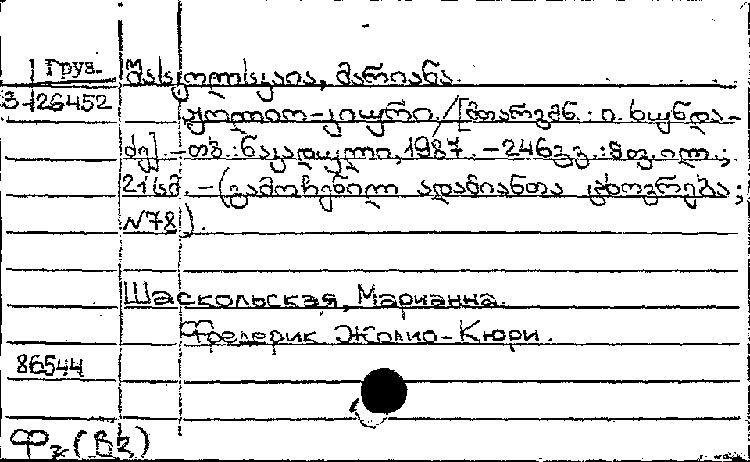 Груз.
შასკოლსკაია, მარიანა.
3-126452
ჟოლიო-კიური. / [მთარგმნ.: ი. ხუნდა-
ძე]. - თბ.: ნაკადული, 1987. - 246 გვ.: 9 ფ. ილ.;
21 სმ. - (გამოჩენილ ადამიანთა ცხოვრება;
N78).
Шаскольская, Марианна.
Фредерик Жолио-Кюри.
86544
(В3)